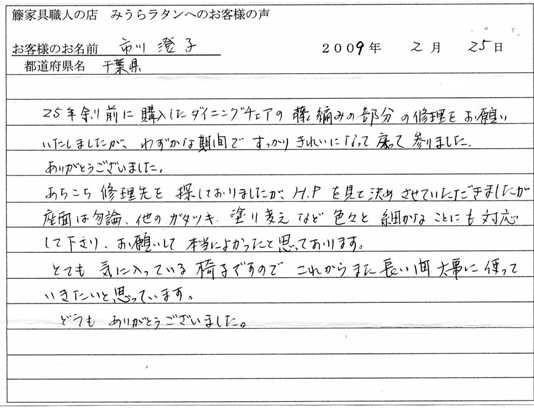 籐家具職人の店 みうらラタンへのお客様の声
お客様のお名前 市川 澄子 2009年 2月 25日
都道府県名 千葉県
25年余り前に購入したダイニングチェアの籐編みの部分の修理をお願い
いたしましたが、わずかな期間ですっかりきれいになって戻って参りました。
ありがとうございました。
あちこち修理先を探しておりましたが、H.Pを見て決めさせていただきましたが
座面は勿論、他のガタツキ、塗り替えなど色々と細かなことにも対応
して下さり、お願いして本当によかったと思っております。
とても気に入っている椅子ですので これからまた長い間大事に使って
いきたいと思っています。
どうもありがとうございました。